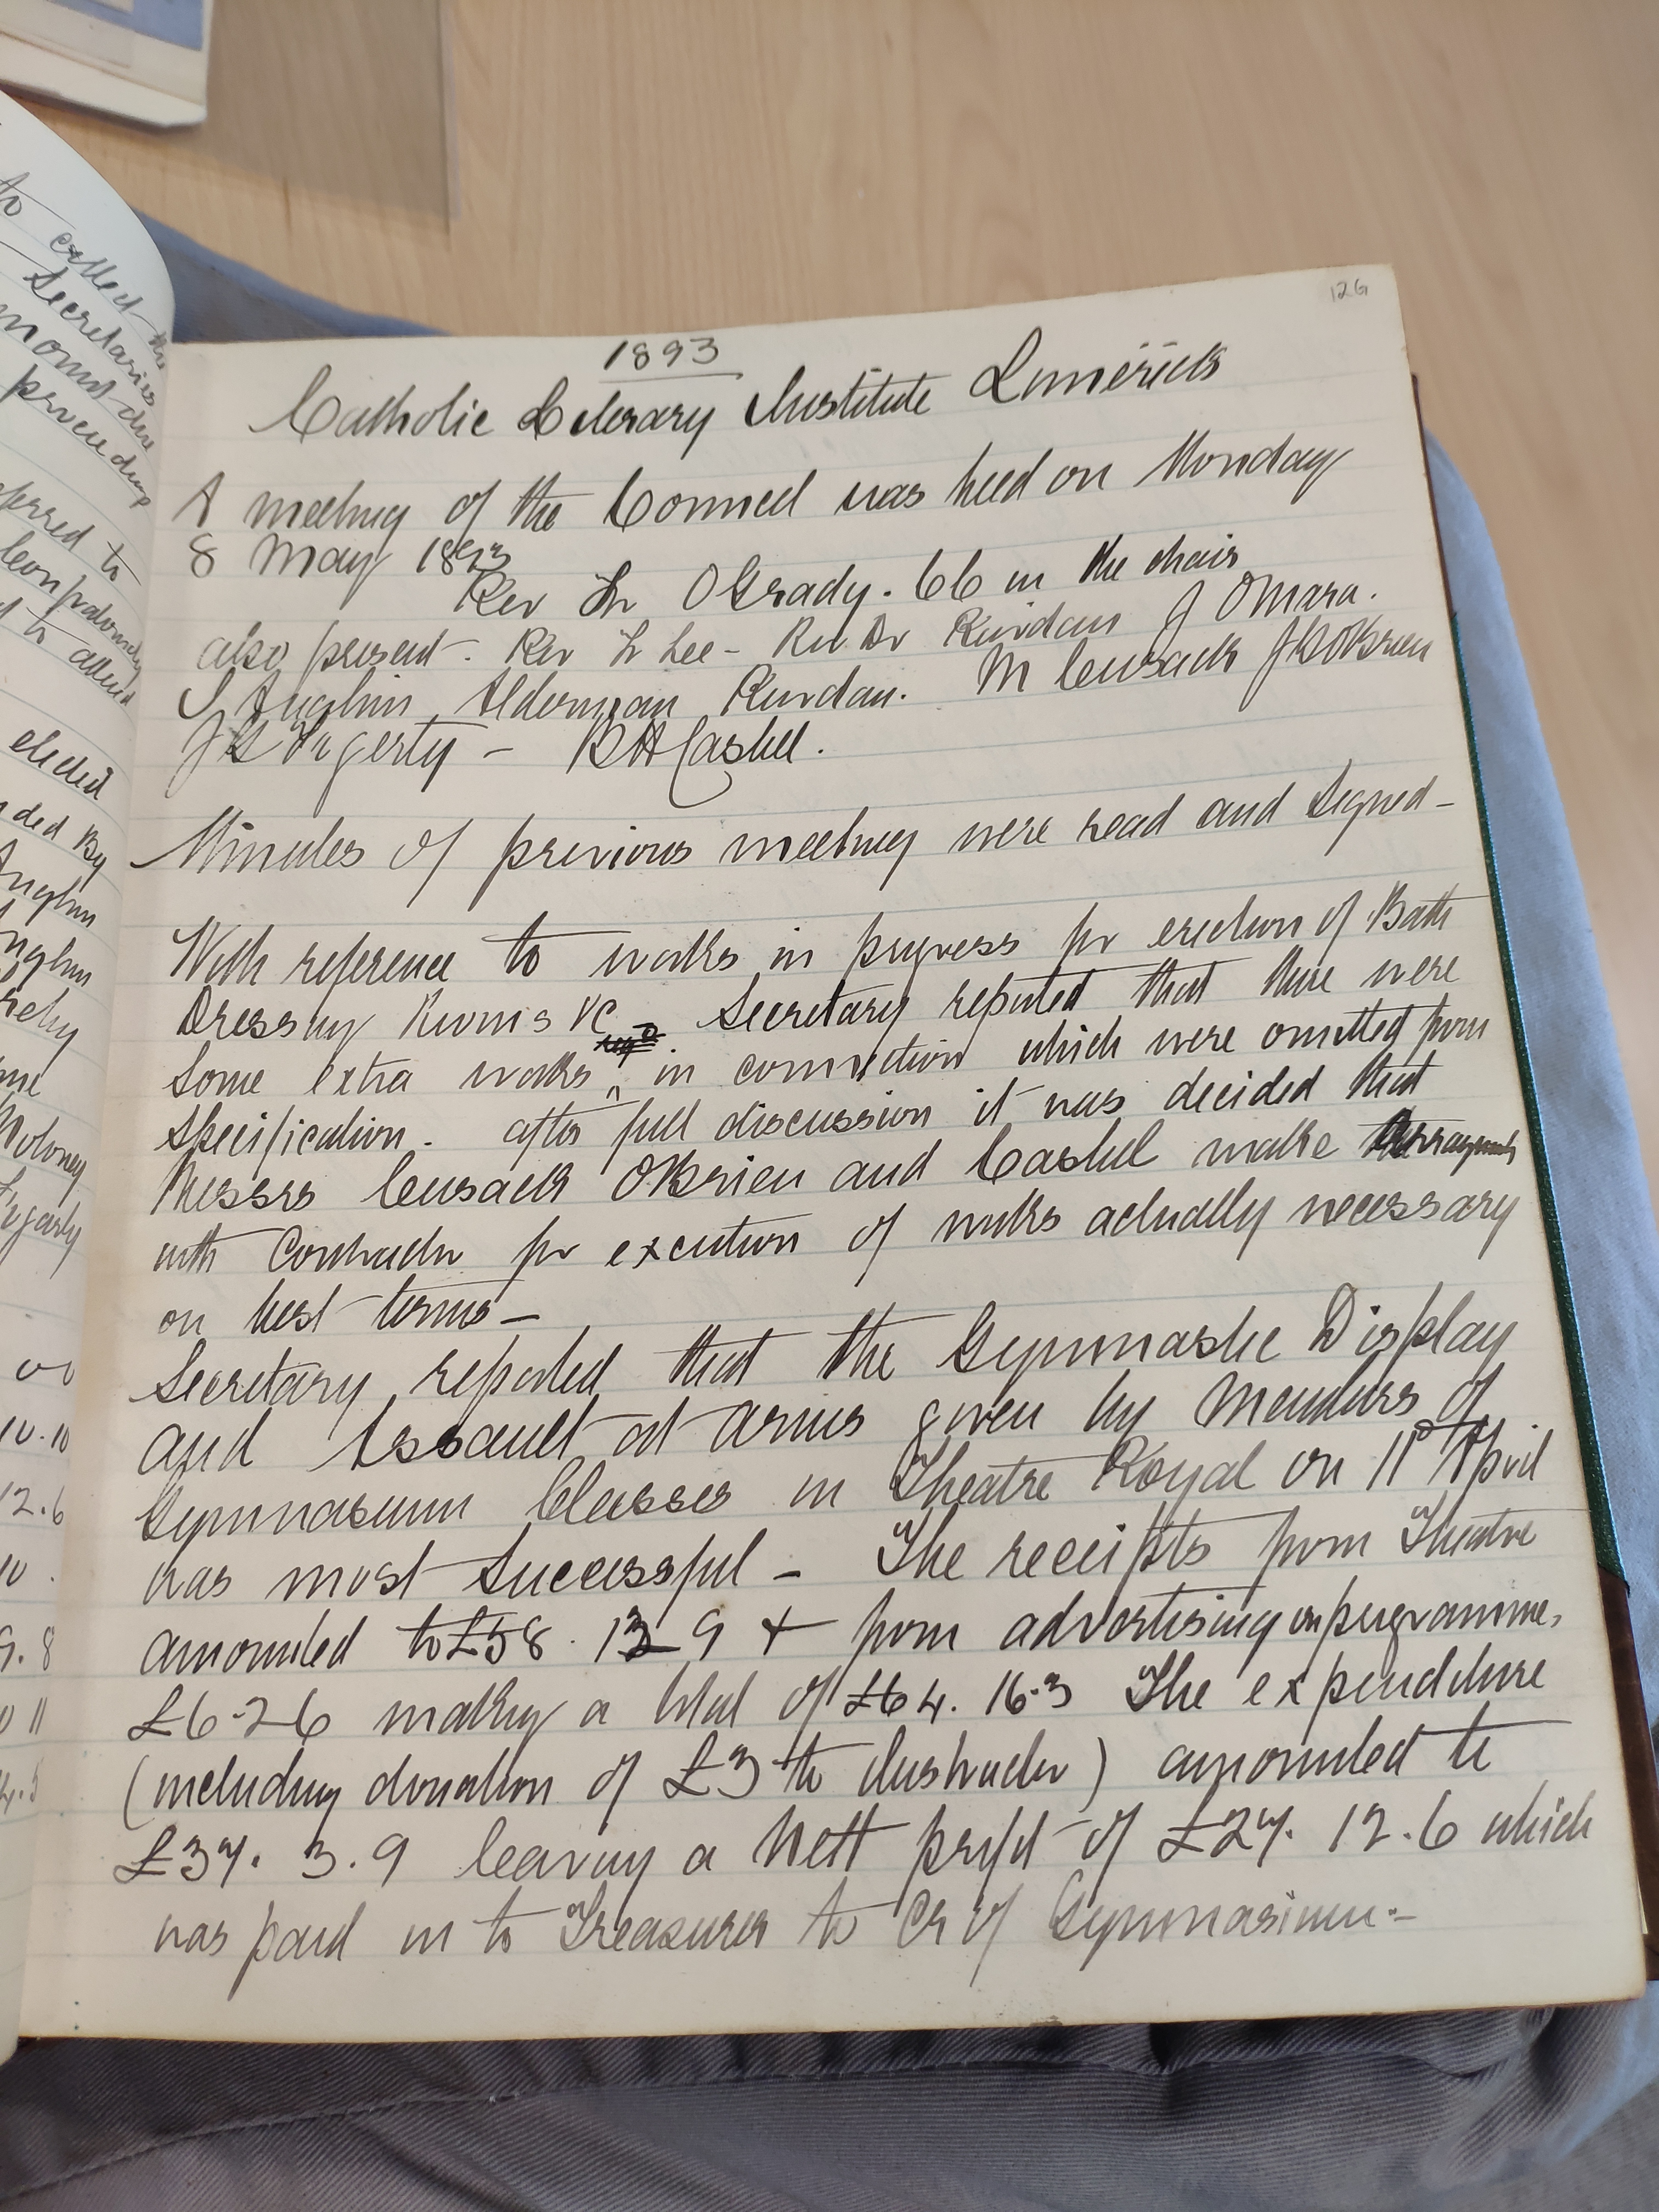 to
called the
Secretaries
amount due
proceedings
referred to
to attend
elected
ded By
Anglim
Anglim
Moloney
Fogerty
10.10
12.6
10.
9.8
126
1893
Catholic Literary Institute Limerick
A meeting of the Council was held on Monday
8 May 1893
Rev Fr O'Grady. CC in the chair
also present - Rev Fr Lee - Rev Dr Riordan J O'Mara.
S Anglim Alderman Riordan. M Cusack J O'Brien
J G Fogerty - B H Cashel.
Minutes of previous meeting were read and signed -
With reference to works in progress for erection of Bath
Dressing Rooms &c Secretary reported that there were
some extra works in connection which were omitted from
specification - after full discussion it was decided that
Messrs Cusack O'Brien and Cashel make Arrangements
with Contractor for excution of works actually necessary
on best terms -
Secretary reported that the Gymnastic Display
and Assault at Arms given by Members of
Gymnasium Classes in Theatre Royal on 11th April
was most Successful - The receipts from Theatre
amounted to £58. 13 9 + from advertising on programme,
£6-2-6 making a total of £64. 16-3 The expenditure
(including donation of £3 to Instructor) amounted to
£37. 3.9 leaving a Nett profit of £27. 12.6 which
was paid in to Treasurer to Cr of Gymnasium. -